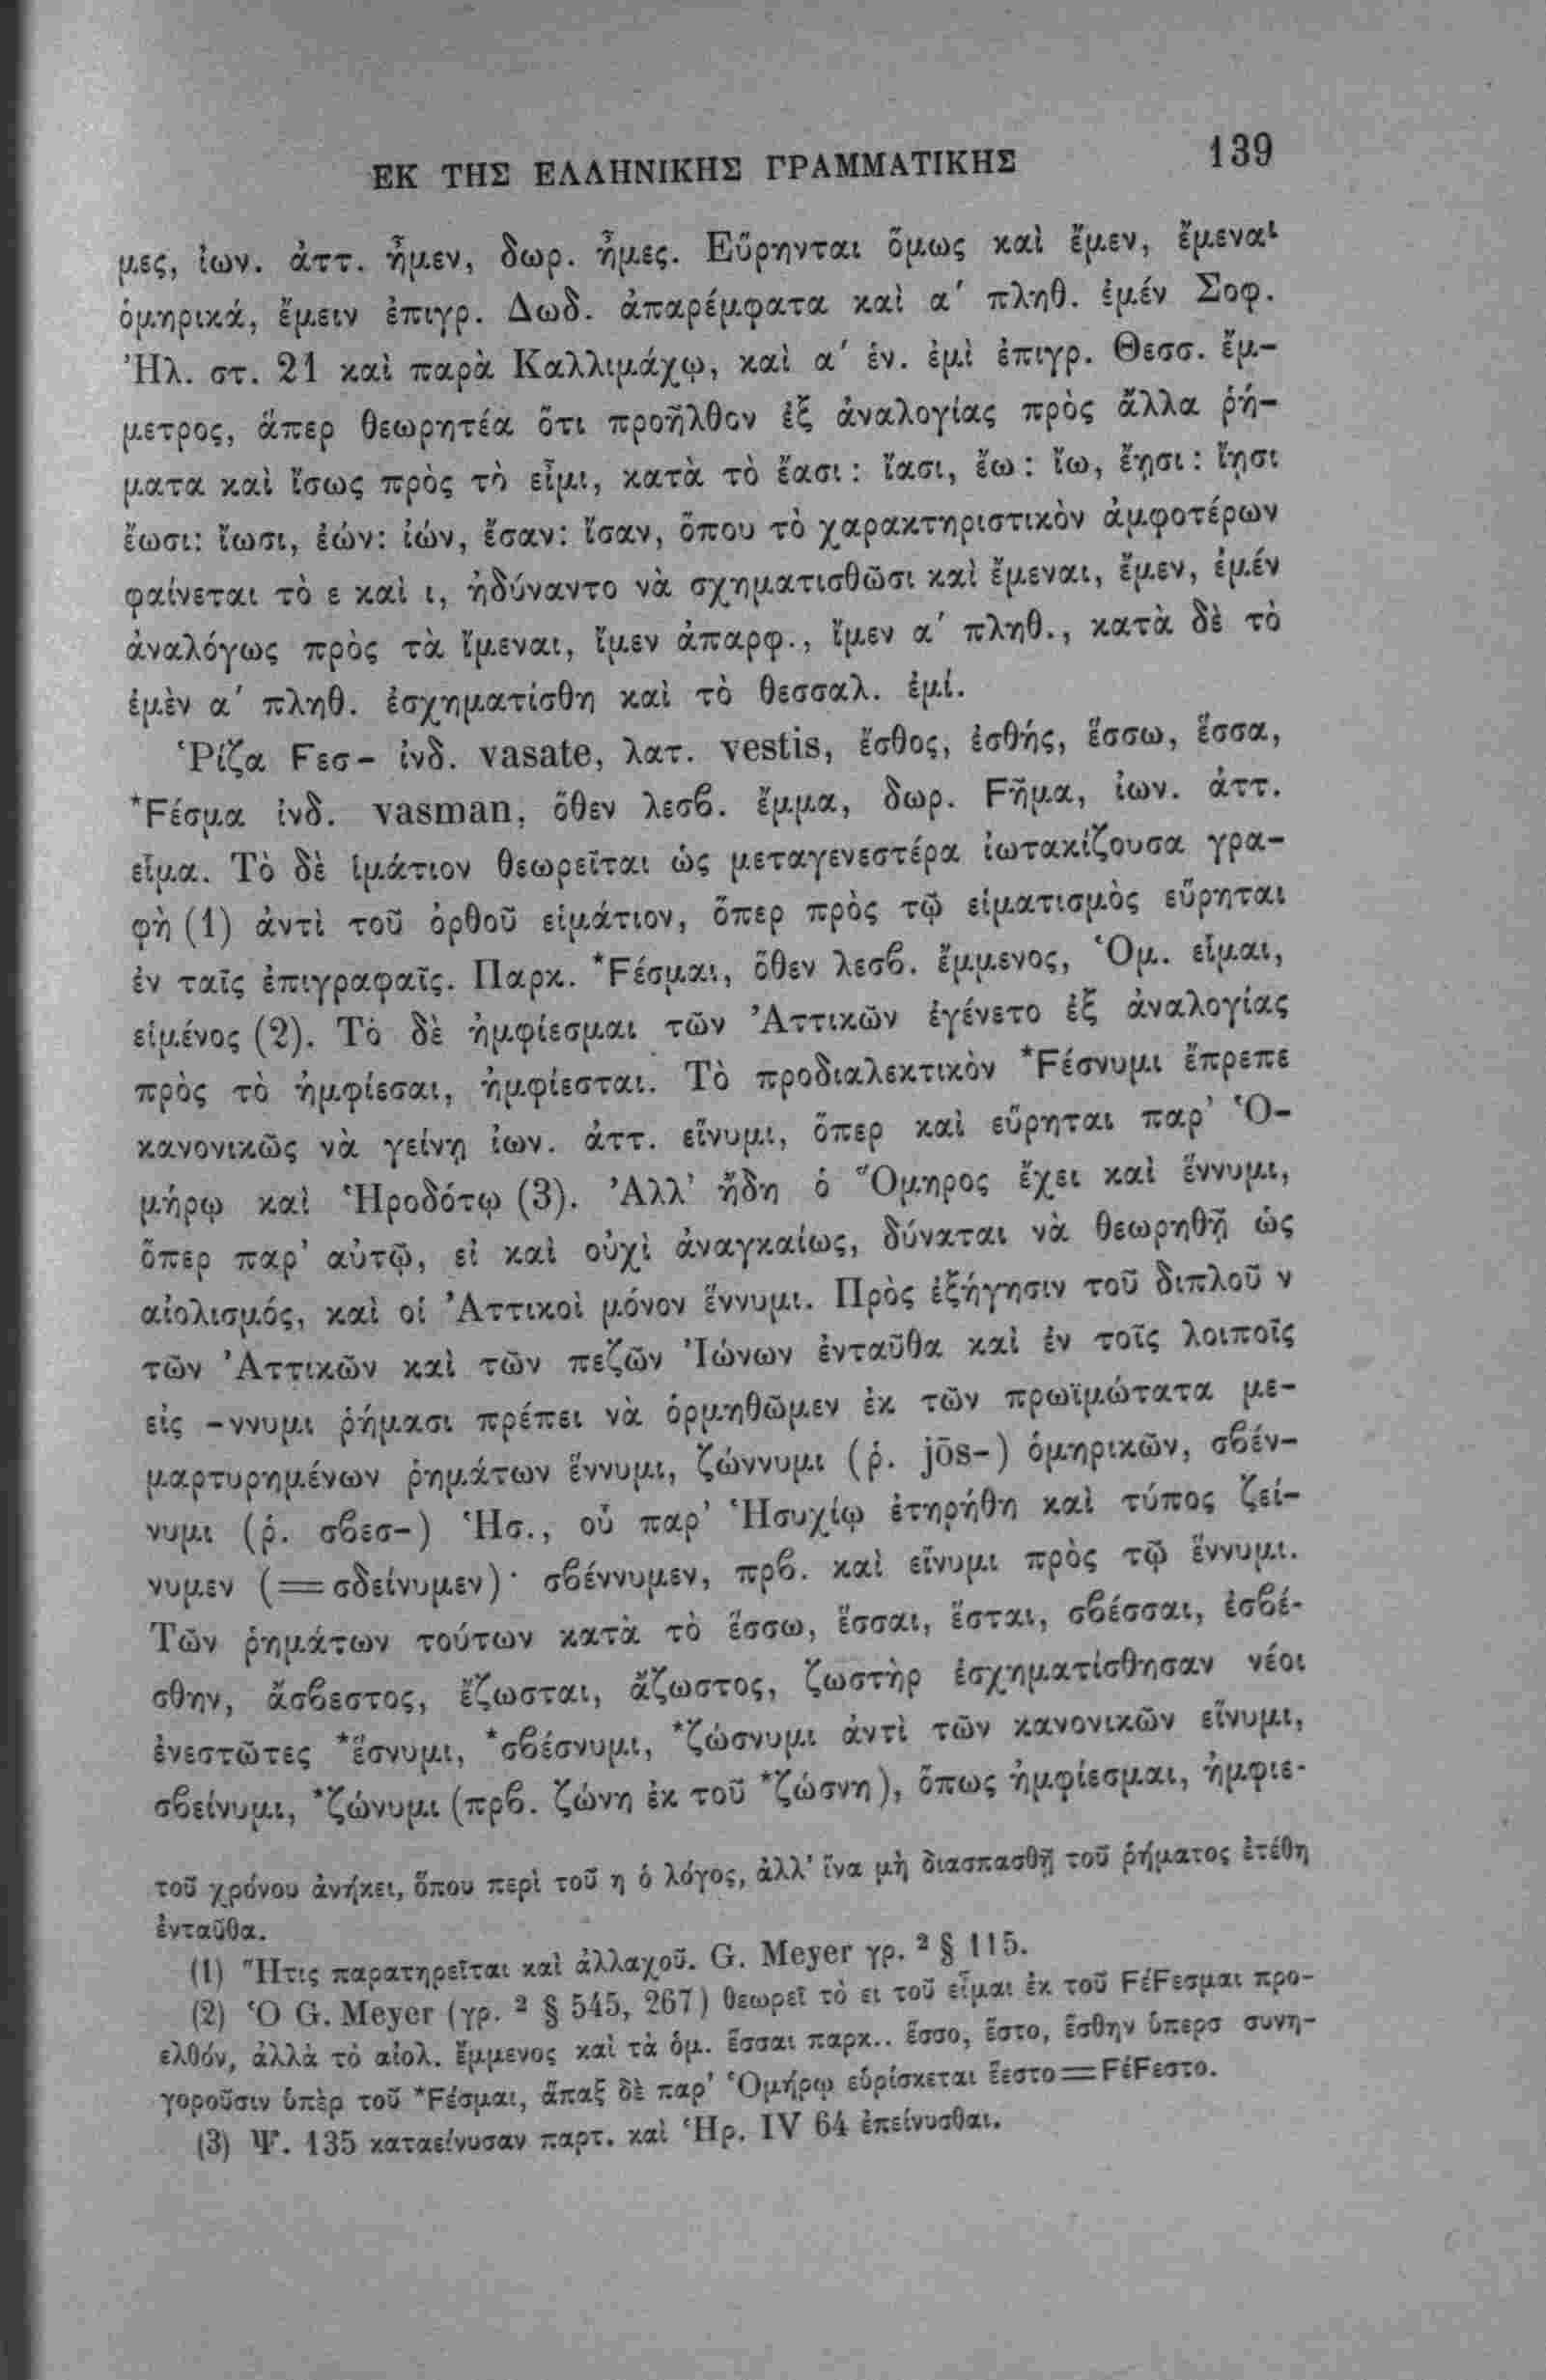 ΕΚ ΤΗΣ ΕΛΛΗΝΙΚΗΣ ΓΡΑΜΜΑΤΙΚΗΣ 139
μες, ἰων. ἀττ. ἦμεν, δωρ. ἦμες. Εὕρηνται ὅμως καὶ ἔμεν, ἔμεναι
ὁμηρικά, ἔμειν ἐπιγρ. Δωδ. ἀπαρέμφατα καὶ α΄ πληθ. ἐμέν Σοφ.
Ἠλ. στ. 21 καὶ παρὰ Καλλιμάχῳ, καὶ α΄ ἑν. ἐμὶ ἐπιγρ. Θεσσ. ἔμ-
μετρος, ἅπερ θεωρητέα ὅτι προῆλθον ἐξ ἀναλογίας πρὸς ἄλλα ῥή-
ματα καὶ ἴσως πρὸς τὸ εἶμι, κατὰ τὸ ἔασι: ἴασι, ἔω: ἴω, ἔῃσι: ἴῃσι
ἔωσι: ἴωσι, ἐών: ἰών, ἔσαν: ἴσαν, ὅπου τὸ χαρακτηριστικὸν ἀμφοτέρων
φαίνεται τὸ ε καὶ ι, ἠδύναντο νὰ σχηματισθῶσι καὶ ἔμεναι, ἔμεν, ἐμέν
ἀναλόγως πρὸς τὰ ἴμεναι, ἴμεν ἀπαρφ., ἴμεν α΄ πληθ., κατὰ δὲ τὸ
ἐμὲν α΄ πληθ. ἐσχηματίσθη καὶ τὸ θεσσαλ. ἐμί.
Ῥίζα Ϝεσ- ἰνδ. vasate, λατ. vestis, ἔσθος, ἐσθής, ἕσσω, ἕσσα,
*Ϝέσμα ἰνδ. vasman, ὅθεν λεσβ. ἔμμα, δωρ. Ϝῆμα, ἰων. ἀττ.
εἷμα. Τὸ δὲ ἱμάτιον θεωρεῖται ὡς μεταγενεστέρα ἰωτακίζουσα γρα-
φὴ (1) ἀντὶ τοῦ ὀρθοῦ εἱμάτιον, ὅπερ πρὸς τῷ εἱματισμὸς εὕρηται
ἐν ταῖς ἐπιγραφαῖς. Παρκ. *Ϝέσμαι, ὅθεν λεσβ. ἔμμενος, Ὁμ. εἷμαι,
εἱμένος (2). Τὸ δὲ ἠμφίεσμαι τῶν Ἀττικῶν ἐγένετο ἐξ ἀναλογίας
πρὸς τὸ ἠμφίεσαι, ἠμφίεσται. Τὸ προδιαλεκτικὸν *Ϝέσνυμι ἔπρεπε
κανονικῶς νὰ γείνῃ ἰων. ἀττ. εἵνυμι, ὅπερ καὶ εὕρηται παρ' Ὁ-
μήρῳ καὶ Ἡροδότῳ (3). Ἀλλ' ἤδη ὁ Ὅμηρος ἔχει καὶ ἕννυμι,
ὅπερ παρ' αὐτῷ, εἰ καὶ οὐχὶ ἀναγκαίως, δύναται νὰ θεωρηθῇ ὡς
αἰολισμός, καὶ οἱ Ἀττικοὶ μόνον ἕννυμι. Πρὸς ἐξήγησιν τοῦ διπλοῦ ν
τῶν Ἀττικῶν καὶ τῶν πεζῶν Ἰώνων ἐνταῦθα καὶ ἐν τοῖς λοιποῖς
εἰς -ννυμι ῥήμασι πρέπει νὰ ὁρμηθῶμεν ἐκ τῶν πρωϊμώτατα με-
μαρτυρημένων ῥημάτων ἕννυμι, ζώννυμι (ῥ. jōs-) ὁμηρικῶν, σβέν-
νυμι (ῥ. σβεσ-) Ἡσ., οὗ παρ' Ἡσυχίῳ ἐτηρήθη καὶ τύπος ζεί-
νυμεν (=σδείνυμεν)· σβέννυμεν, πρβ. καὶ εἵνυμι πρὸς τῷ ἕννυμι.
Τῶν ῥημάτων τούτων κατὰ τὸ ἕσσω, ἕσσαι, ἕσται, σβέσσαι, ἐσβέ-
σθην, ἄσβεστος, ἔζωσται, ἄζωστος, ζωστὴρ ἐσχηματίσθησαν νέοι
ἐνεστῶτες *ἕσνυμι, *σβέσνυμι, *ζώσνυμι ἀντὶ τῶν κανονικῶν εἵνυμι,
σβείνυμι, *ζώνυμι (πρβ. ζώνη ἐκ τοῦ *ζώσνη), ὅπως ἠμφίεσμαι, ἠμφιε-
τοῦ χρόνου ἀνήκει, ὅπου περὶ τοῦ η ὁ λόγος, ἀλλ' ἵνα μὴ διασπασθῇ τοῦ ῥήματος ἐτέθη
ἐνταῦθα.
(1) Ἥτις παρατηρεῖται καὶ ἀλλαχοῦ. G. Meyer γρ. ² § 115.
(2) Ὁ G. Meyer (γρ. ² § 545, 267) θεωρεῖ τὸ ει τοῦ εἷμαι ἐκ τοῦ ϜέϜεσμαι προ-
ελθόν, ἀλλὰ τὸ αἰολ. ἔμμενος καὶ τὰ ὁμ. ἕσσαι παρκ.. ἕσσο, ἕστο, ἕσθην ὑπερσ συνη-
γοροῦσιν ὑπὲρ τοῦ *Ϝέσμαι, ἅπαξ δὲ παρ' Ὁμήρῳ εὑρίσκεται ἕεστο=ϜέϜεστο.
(3) Ψ. 135 καταείνυσαν παρτ. καὶ Ἡρ. IV 64 ἐπείνυσθαι.